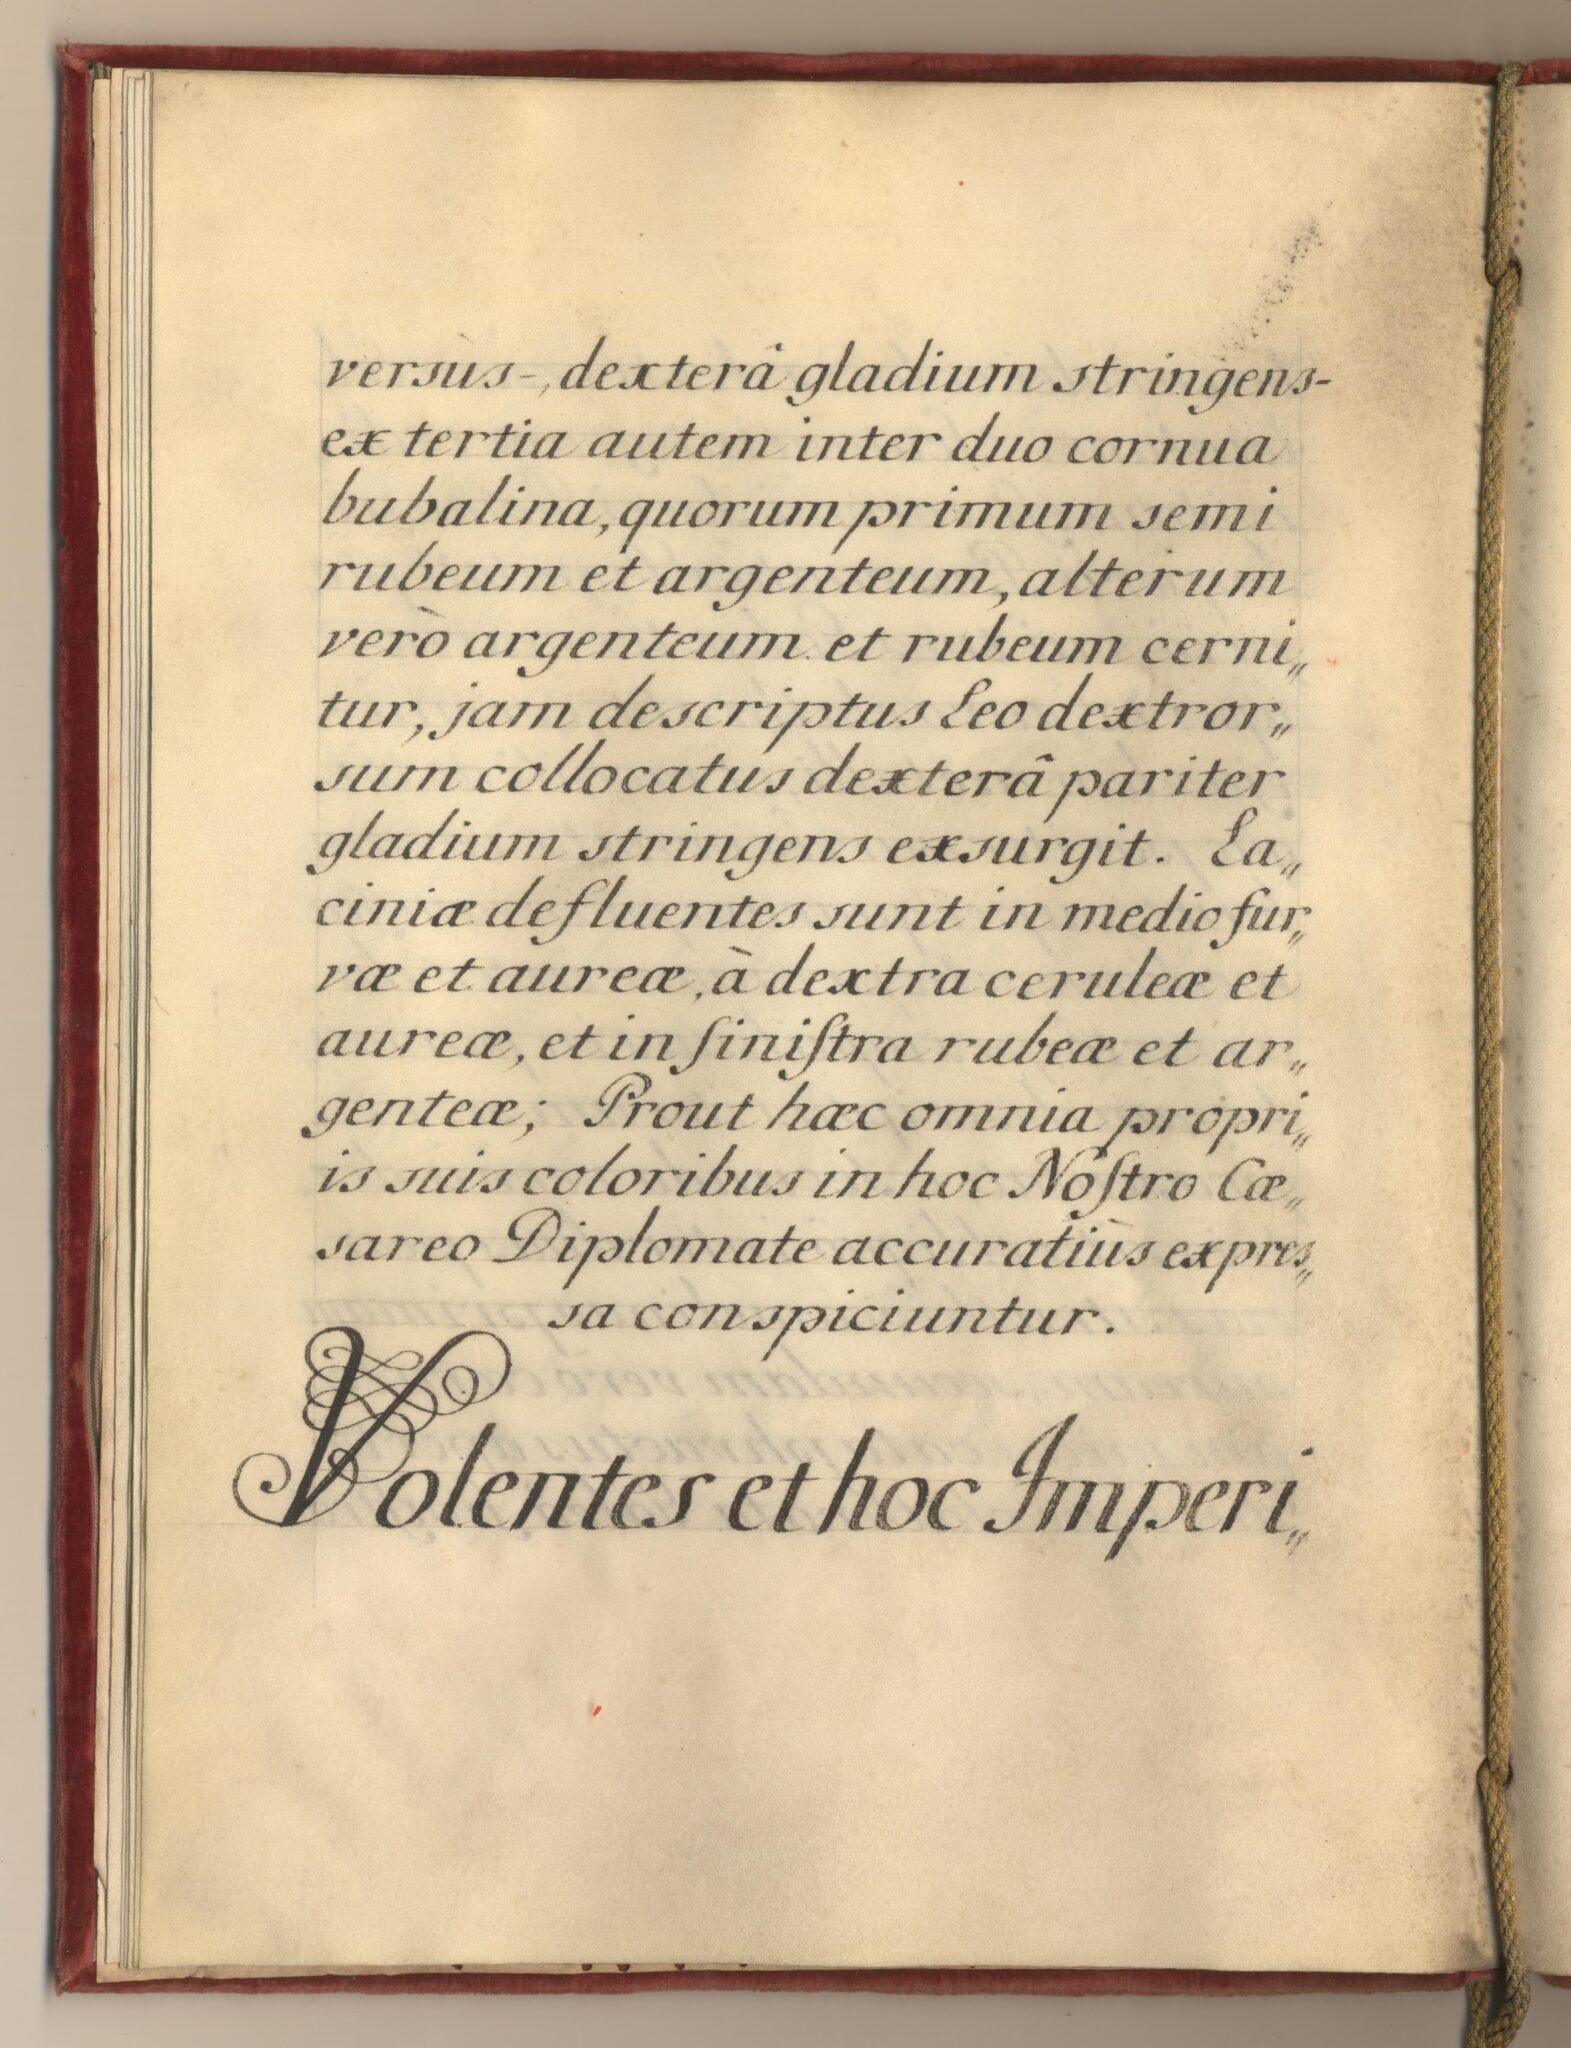 versùs-, dexterâ gladium stringens-
ex tertia autem inter duo cornua
bubalina, quorum primum semi
rubeum et argenteum, alterum
verò argenteum et rubeum cerni„
tur, jam descriptus Leo dextror„
sum collocatus dexterâ pariter
gladium stringens exsurgit. La„
ciniæ defluentes sunt in medio fur„
væ et aureæ, à dextra ceruleæ et
aureæ, et in ſiniſtra rubeæ et ar„
genteæ; Prout hæc omnia propri„
is suis coloribus in hoc Noſtro Cæ„
sareo Diplomate accuratiùs expres„
sa conspiciuntur.
Volentes et hoc Imperi„